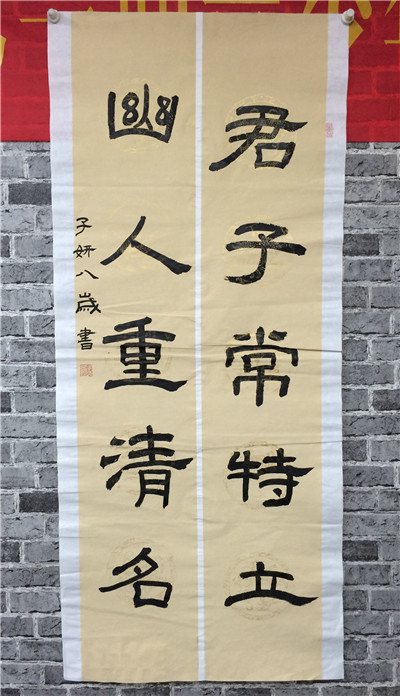 君子常特立
幽人重清名
子妍八歲書